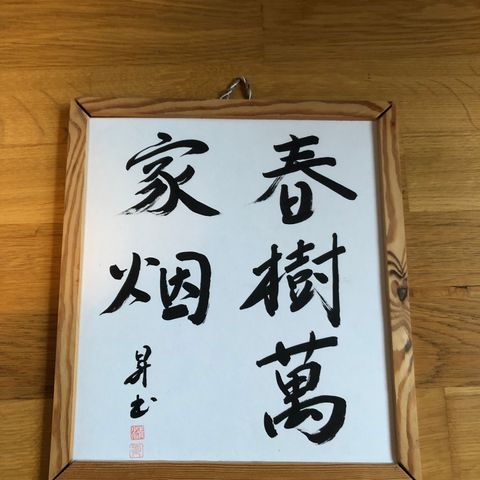 春樹萬
家烟
昇书